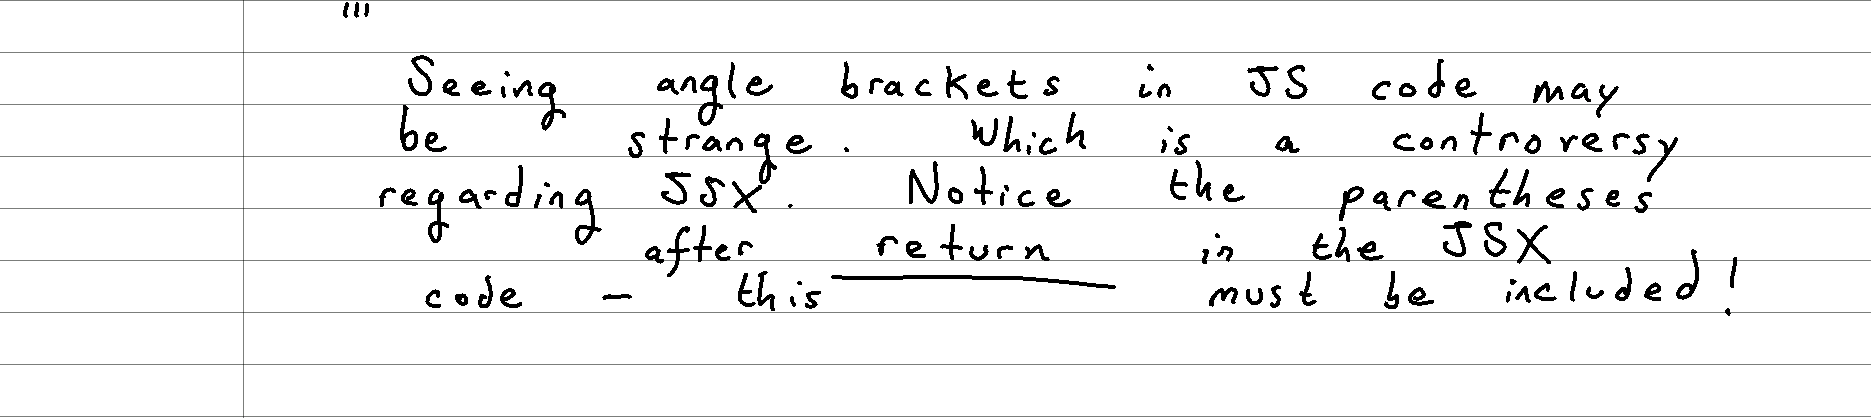 "'
Seeing angle brackets in JS code may
be strange. Which is a controversy
regarding JSX. Notice the parentheses
after return in the JSX
code - this must be included!